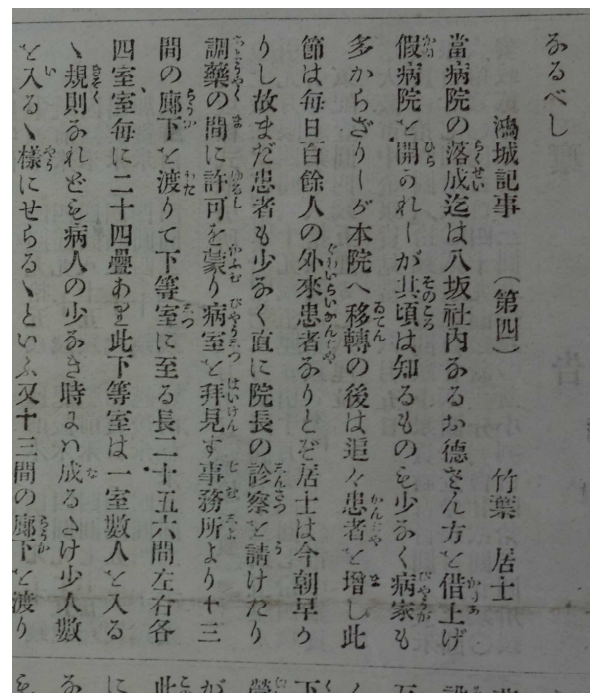 なるべし
鴻城記事　（第四）　竹葉　居士
當病院の落成迄は八坂社内なるお德さん方を借上げ
假病院を開かれしが其頃は知るものも少なく病家も
多からざりしが本院へ移轉の後は追々患者を增し此
節は每日百餘人の外來患者なりとぞ居士は今朝早か
りし故まだ患者も少なく直に院長の診察を請けたり
調藥の間に許可を蒙り病室を拜見す事務所より十三
間の廊下を渡りて下等室に至る長二十五六間左右各
四室、室每に二十四疊あり此下等室は一室數人を入る
ゝ規則なれども病人の少なき時は成るたけ少人數
を入るゝ樣にせらるゝといふ又十三間の廊下を渡り